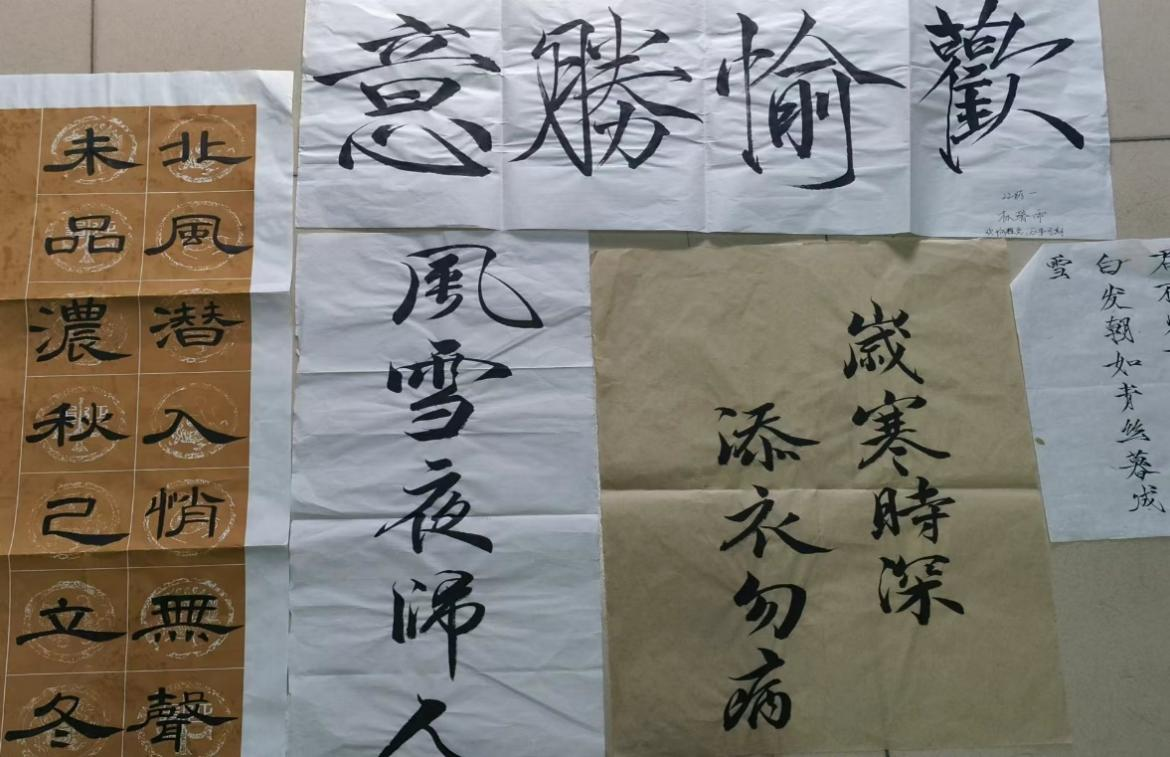 歡愉勝意
北風潜入悄無聲
未品濃秋已立冬
風雪夜歸人
歲寒時深
添衣勿病
白发朝如青丝暮成
雪